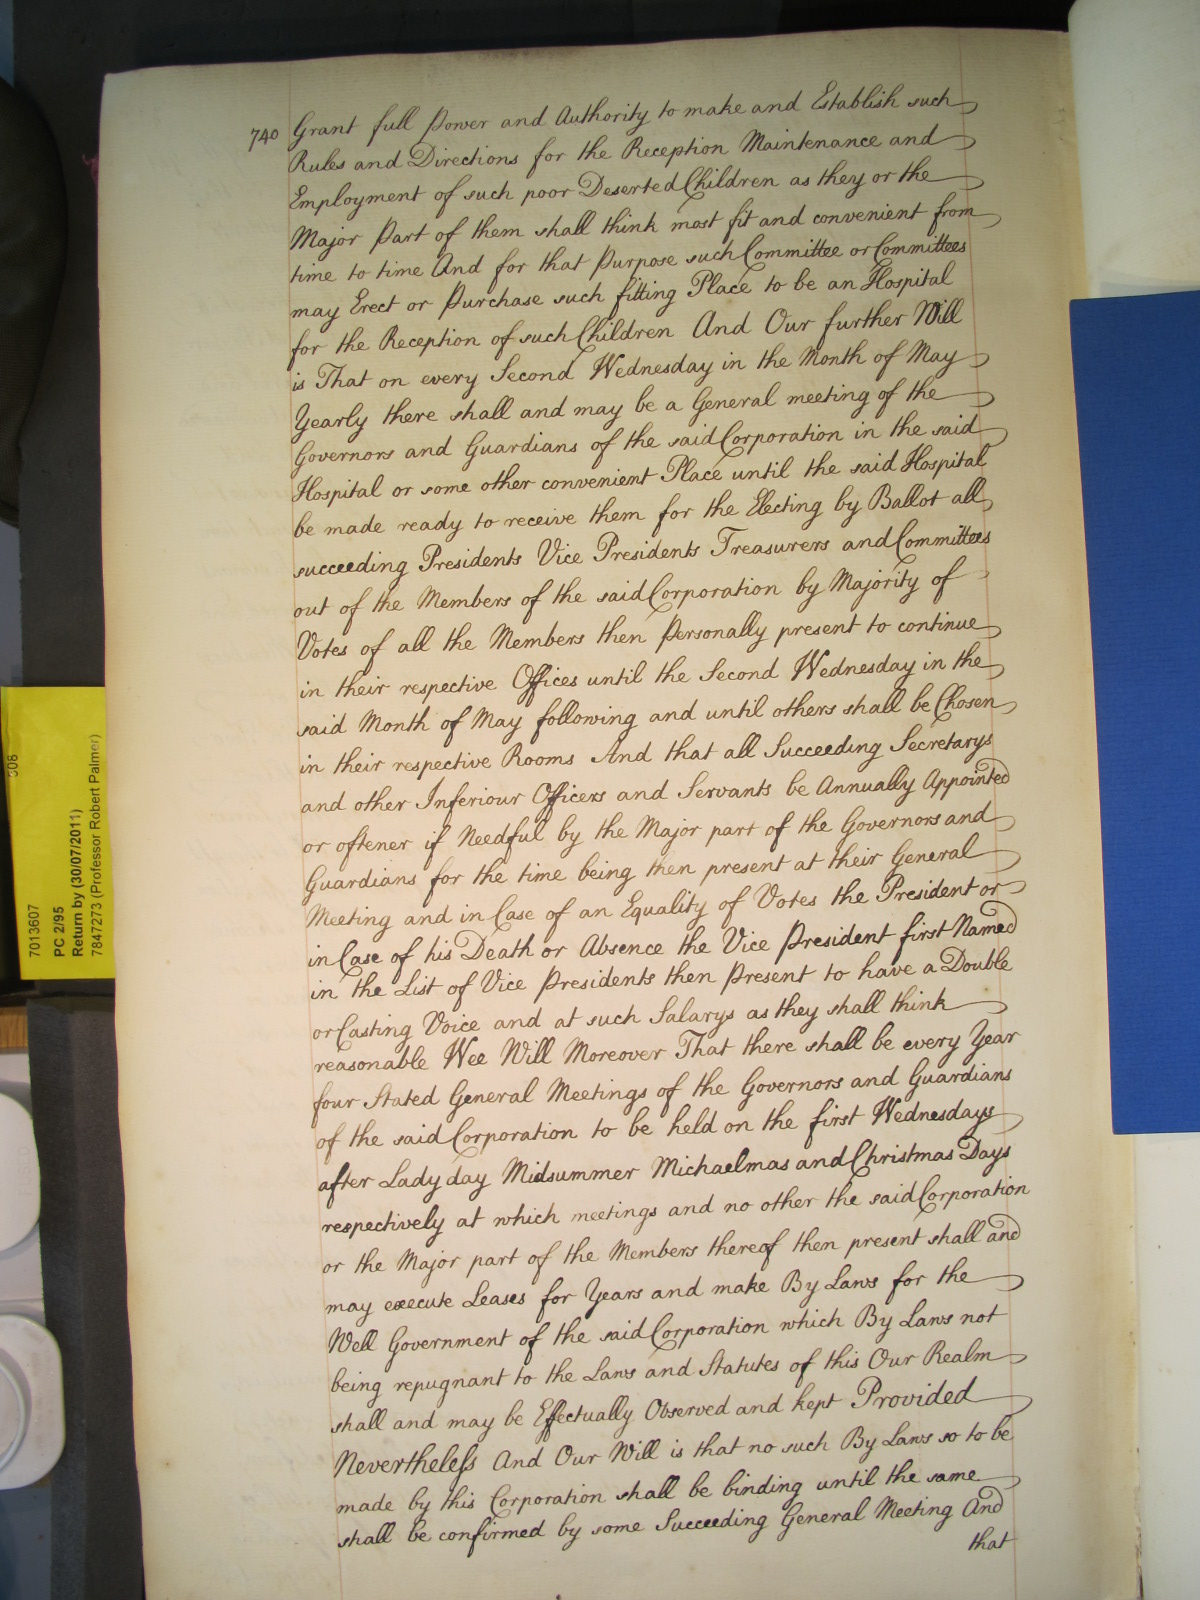 740
Grant full Power and Authority to make and Establish such
Rules and Directions for the Reception Maintenance and
Employment of such poor Deserted Children as they or the
Major Part of them shall think most fit and convenient from
time to time And for that Purpose such Committee or Committees
may Erect or Purchase such fitting Place to be an Hospital
for the Reception of such Children And Our further Will
is That on every Second Wednesday in the Month of May
Yearly there shall and may be a General meeting of the
Governors and Guardians of the said Corporation in the said
Hospital or some other convenient Place until the said Hospital
be made ready to receive them for the Electing by Ballot all
succeeding Presidents Vice Presidents Treasurers and Committees
out of the Members of the said Corporation by Majority of
Votes of all the Members then Personally present to continue
in their respective Offices until the Second Wednesday in the
said Month of May following and until others shall be Chosen
in their respective Rooms And that all Succeeding Secretarys
and other Inferiour Officers and Servants be Annually Appointed
or oftener if Needful by the Major part of the Governors and
Guardians for the time being then present at their General
Meeting and in Case of an Equality of Votes the President or
in Case of his Death or Absence the Vice President first Named
in the List of Vice Presidents then Present to have a Double
or Casting Voice and at such Salarys as they shall think
reasonable Wee Will Moreover That there shall be every Year
four Stated General Meetings of the Governors and Guardians
of the said Corporation to be held on the first Wednesdays
after Lady day Midsummer Michaelmas and Christmas Days
respectively at which meetings and no other the said Corporation
or the Major part of the Members thereof then present shall and
may execute Leases for Years and make By Laws for the
Well Government of the said Corporation which By Laws not
being repugnant to the Laws and Statutes of this Our Realm
shall and may be Effectually Observed and kept Provided
Neverthelefs And Our Will is that no such By Laws so to be
made by this Corporation shall be binding until the same
shall be confirmed by some Succeeding General Meeting And
that
308
7013607
PC 2/95
Return by (30/07/2011)
7847273 (Professor Robert Palmer)